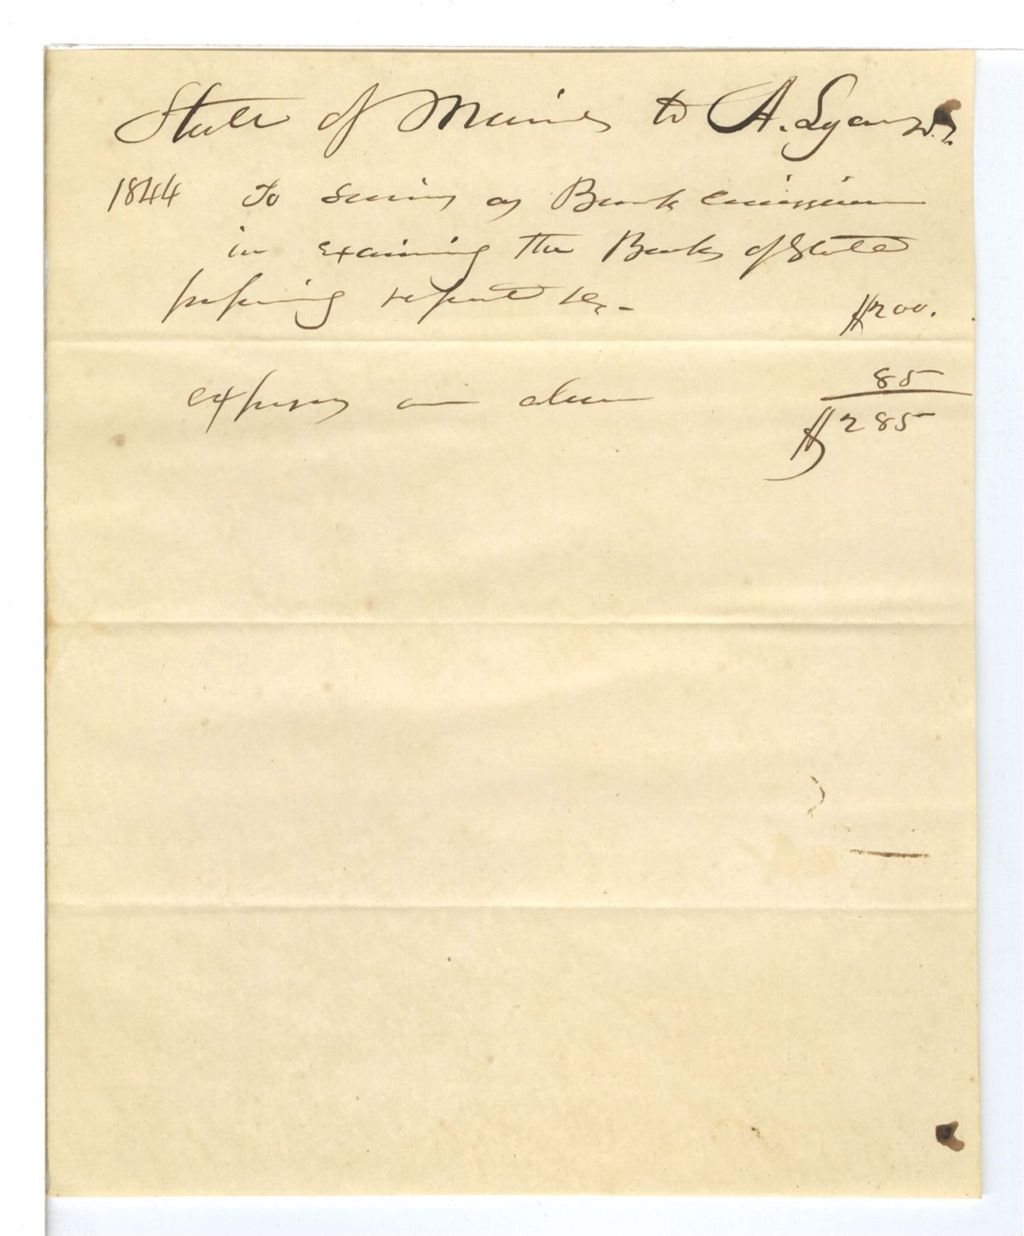 State of Maine to A. Lyan
1844 To Services as Bank Commissioner
in examining the Banks of State
preparing report &c. - $200.
expenses on 85
$285